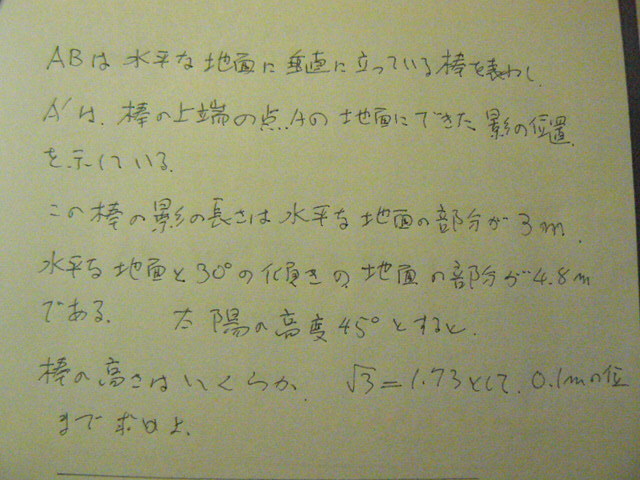 ABは水平な地面に垂直に立っている棒を表わし
A'は、棒の上端の点Aの地面にできた影の位置
を示している。
この棒の影の長さは水平な地面の部分が3m、
水平な地面と30°の傾きの地面の部分が4.8m
である。 太陽の高度45°とすると、
棒の高さはいくらか。 √3=1.73として、0.1mの位
まで求めよ。